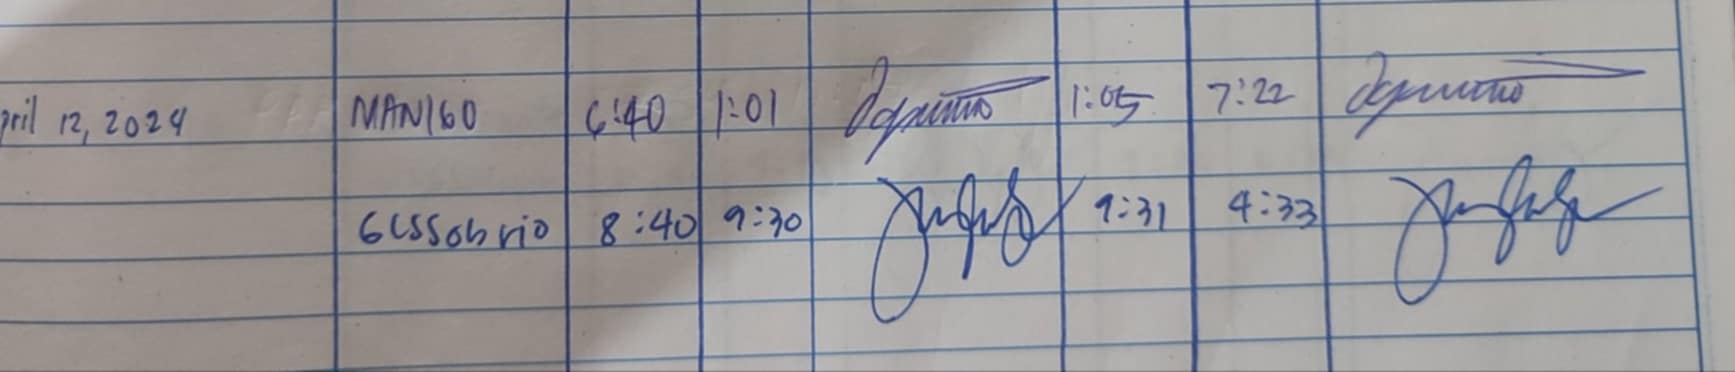 pril 12, 2024 MANIGO 6:40 1:01 1:05 7:22
GLSSobrio 8:40 9:30 9:31 4:33